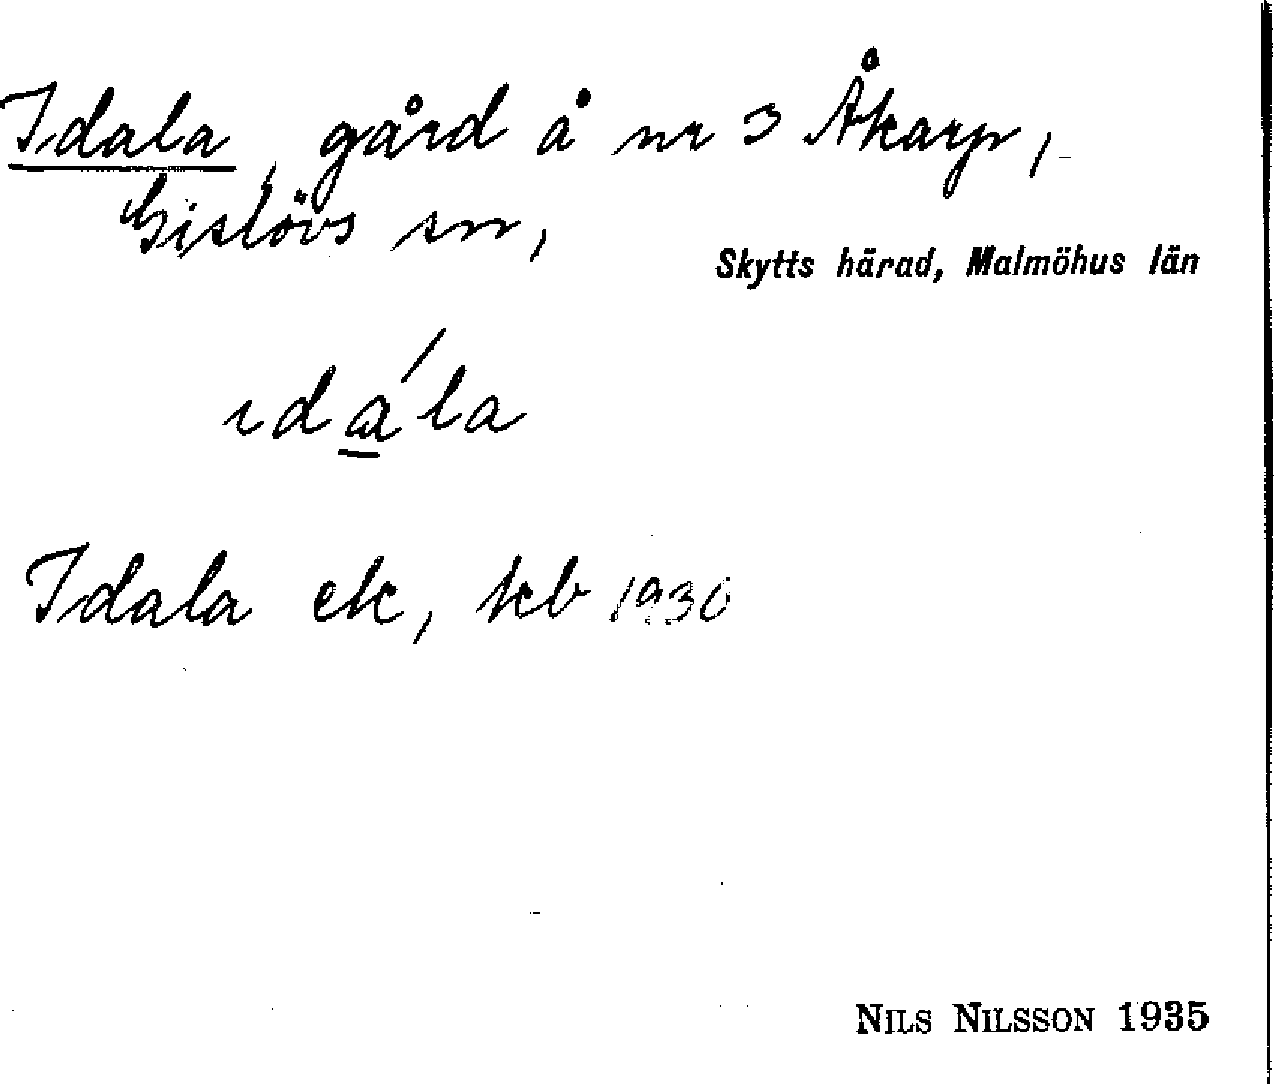 Idala, gård å nr 3 Åkarp,
Gislövs sn,
Skytts härad, Malmöhus län
ıda̲´la
Idala ek, kb 1930
NILS NILSSON 1935